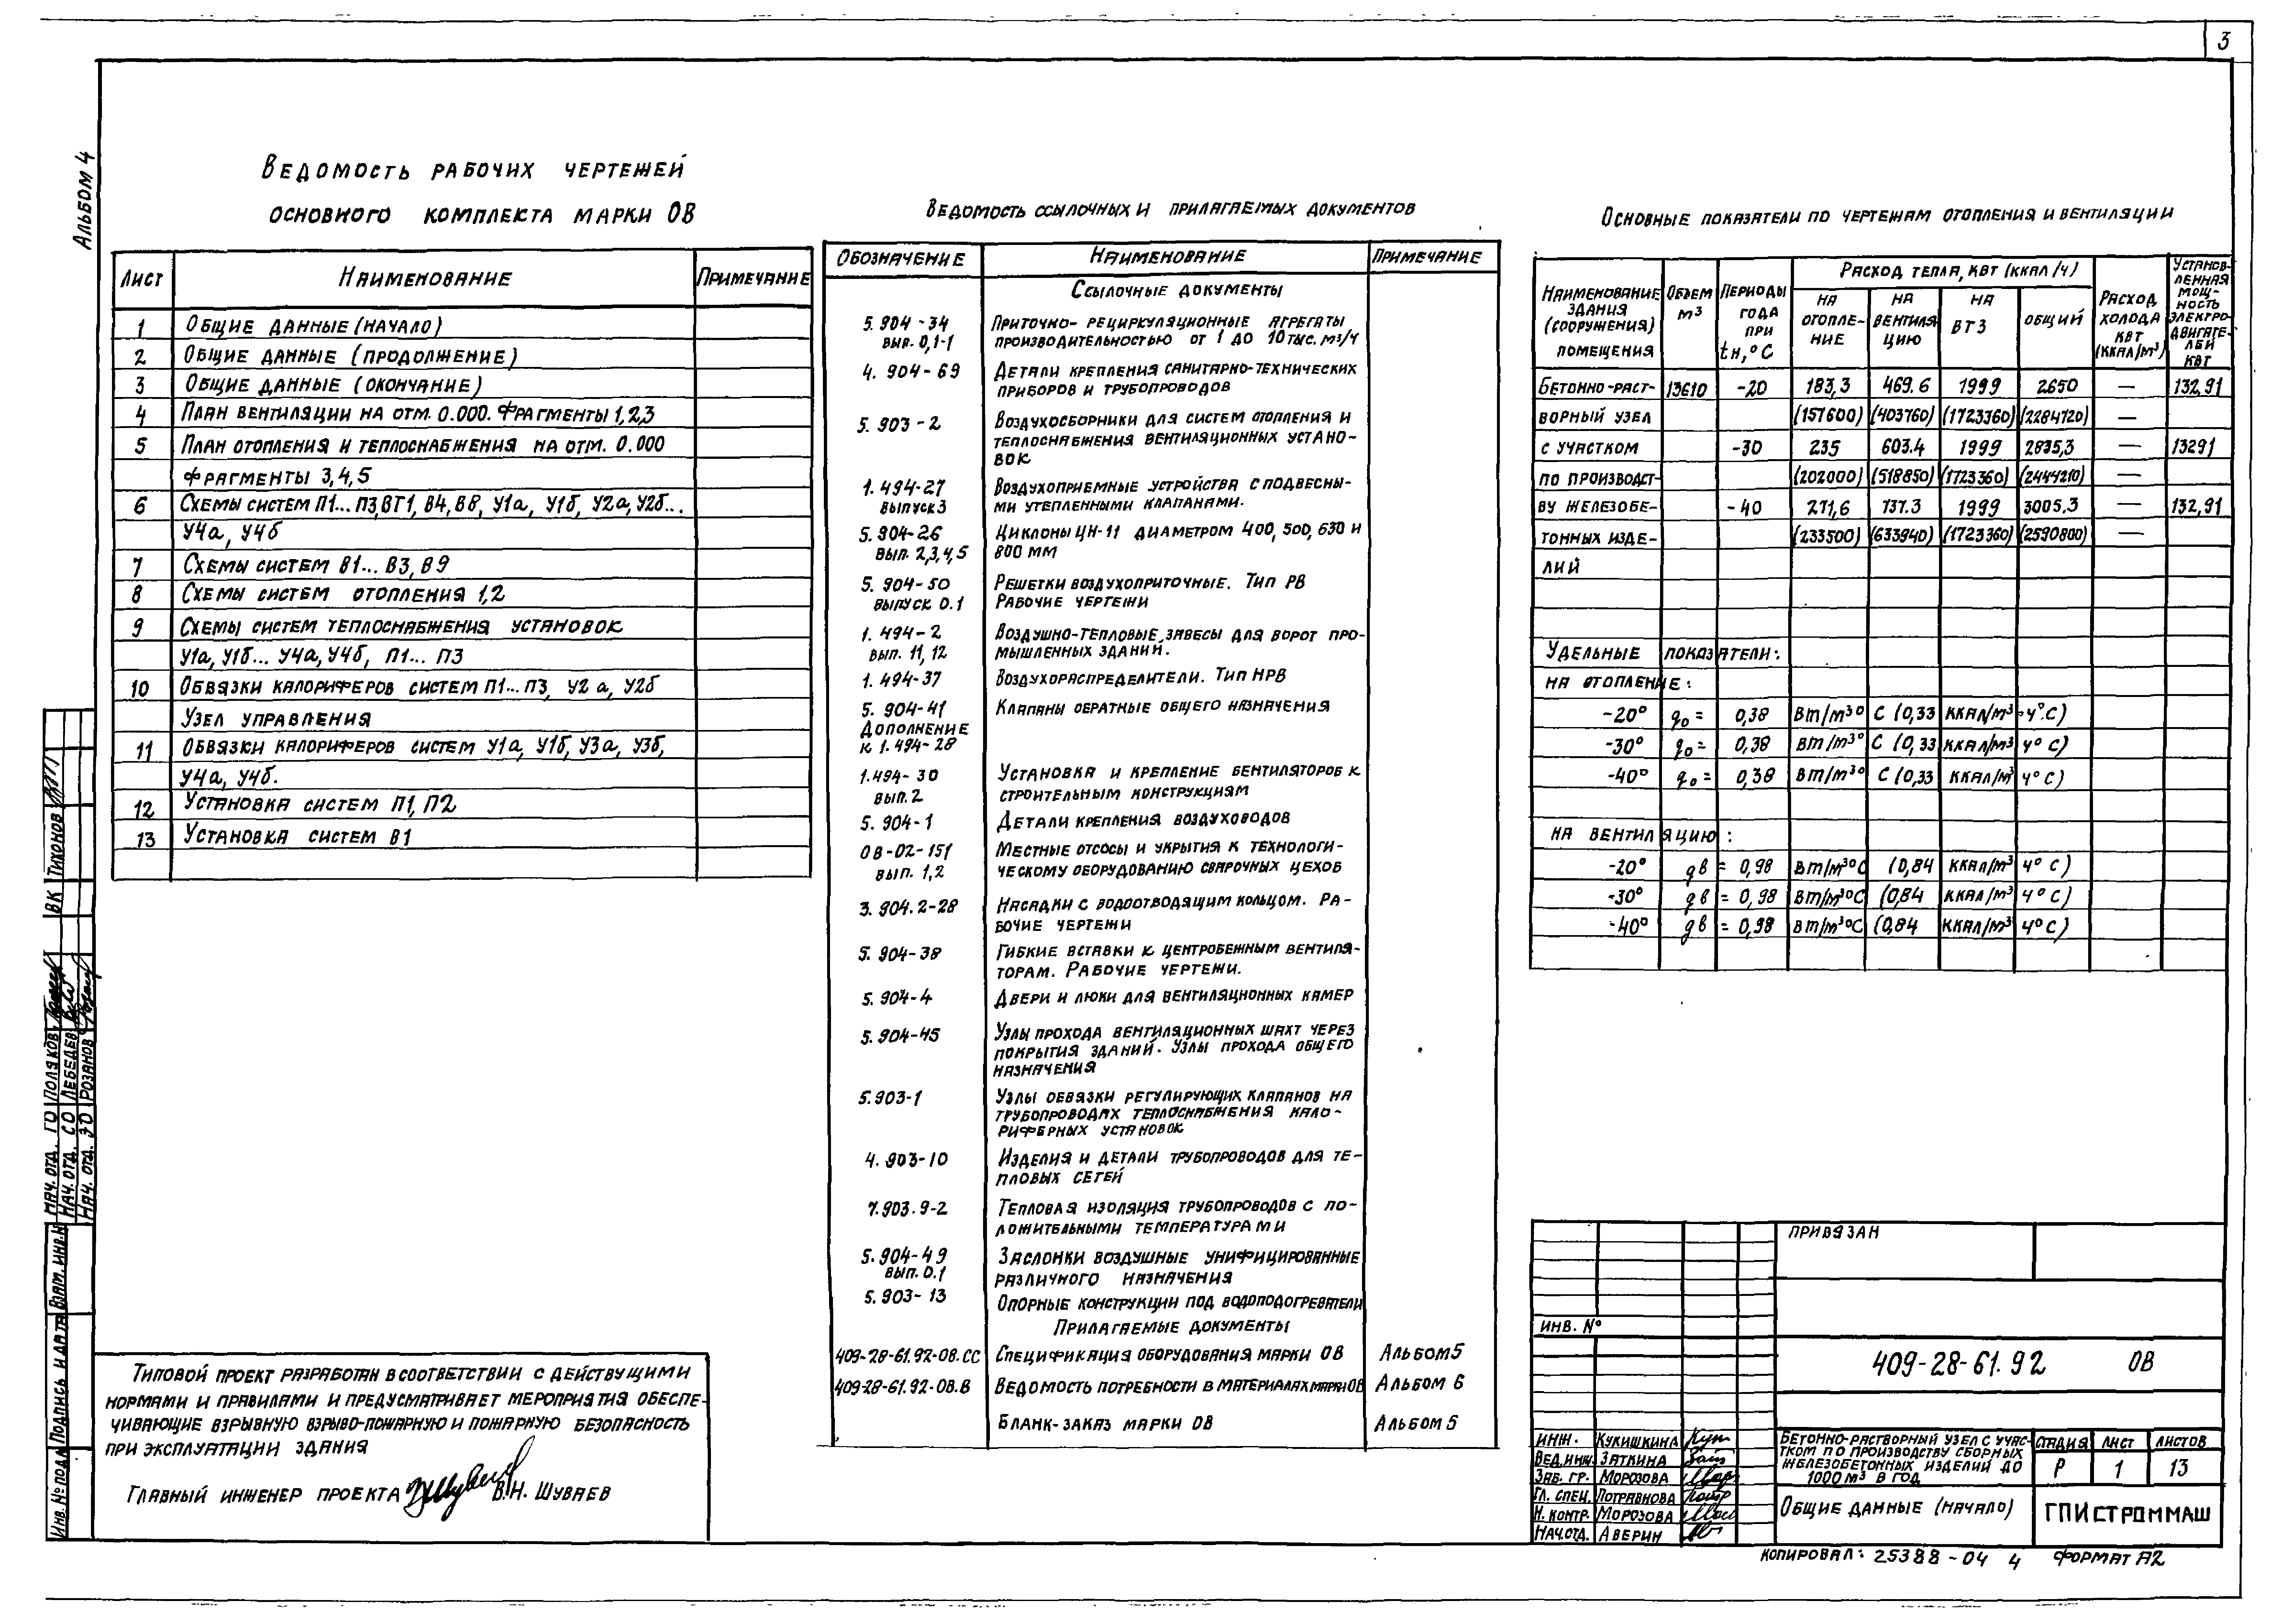 3
Альбом 4
Ведомость рабочих чертежей
основного комплекта марки ОВ
Лист Наименование Примечание
1 Общие данные (начало)
2 Общие данные (продолжение)
3 Общие данные (окончание)
4 План вентиляции на отм. 0.000. Фрагменты 1,2,3
5 План отопления и теплоснабжения на отм. 0.000
Фрагменты 3,4,5
6 Схемы систем П1... П3, ВТ1, В4, В8, У1а, У1б, У2а, У2б...
У4а, У4б
7 Схемы систем В1... В3, В9
8 Схемы систем отопления 1,2
9 Схемы систем теплоснабжения установок
У1а, У1б... У4а, У4б, П1... П3
10 Обвязки калориферов систем П1... П3, У2а, У2б
Узел управления
11 Обвязки калориферов систем У1а, У1б, У3а, У3б,
У4а, У4б.
12 Установка систем П1, П2
13 Установка систем В1
Ведомость ссылочных и прилагаемых документов
Обозначение Наименование Примечание
Ссылочные документы
5.904-34 Приточно-рециркуляционные агрегаты
вып. 0,1-1 производительностью от 1 до 10 тыс. м³/ч
4.904-69 Детали крепления санитарно-технических
приборов и трубопроводов
5.903-2 Воздухосборники для систем отопления и
теплоснабжения вентиляционных устано-
вок
1.494-27 Воздухоприемные устройства с подвесны-
выпуск 3 ми утепленными клапанами.
5.904-26 Циклоны ЦН-11 диаметром 400, 500, 630 и
вып. 2,3,4,5 800 мм
5.904-50 Решетки воздухоприточные. Тип РВ
выпуск 0.1 Рабочие чертежи
1.494-2 Воздушно-тепловые завесы для ворот про-
вып. 11, 12 мышленных зданий.
1.494-37 Воздухораспределители. Тип НРВ
5.904-41 Клапаны обратные общего назначения
Дополнение
к 1.494-28
1.494-30 Установка и крепление вентиляторов к
вып. 2 строительным конструкциям
5.904-1 Детали крепления воздуховодов
ОВ-02-151 Местные отсосы и укрытия к технологи-
вып. 1,2 ческому оборудованию сварочных цехов
3.904.2-28 Насадки с водоотводящим кольцом. Ра-
бочие чертежи
5.904-38 Гибкие вставки к центробежным вентиля-
торам. Рабочие чертежи.
5.904-4 Двери и люки для вентиляционных камер
5.904-45 Узлы прохода вентиляционных шахт через
покрытия зданий. Узлы прохода общего
назначения
5.903-1 Узлы обвязки регулирующих клапанов на
трубопроводах теплоснабжения кало-
риферных установок
4.903-10 Изделия и детали трубопроводов для те-
пловых сетей
7.903.9-2 Тепловая изоляция трубопроводов с по-
ложительными температурами
5.904-49 Заслонки воздушные унифицированные
вып. 0.1 различного назначения
5.903-13 Опорные конструкции под водоподогреватели
Прилагаемые документы
409-28-61.92-ОВ.СС Спецификация оборудования марки ОВ Альбом 5
409-28-61.92-ОВ.В Ведомость потребности в материалах марки ОВ Альбом 6
Бланк-заказ марки ОВ Альбом 5
Основные показатели по чертежам отопления и вентиляции
Наименование здания (сооружения) помещения Объем м³ Периоды года при tн, °С Расход тепла, кВт (ккал/ч) Расход холода кВт (ккал/м³) Установленная мощность электродвигателей кВт
на отопление на вентиляцию на ВТЗ общий
Бетонно-раст- 13610 -20 183,3 469.6 1999 2650 — 132,91
ворный узел (157600) (403760) (1723360) (2284720) —
с участком -30 235 603.4 1999 2835,3 — 13291
по производст- (202000) (518850) (1723360) (2444210) —
ву железобе- -40 271,6 737.3 1999 3005.3 — 132,91
тонных изде- (233500) (633940) (1723360) (2590800) —
лий
Удельные показатели:
на отопление:
-20° qо = 0,38 Вт/м³° С (0,33 ккал/м³·ч°С)
-30° qо = 0,38 Вт/м³° С (0,33 ккал/м³ ч° С)
-40° qо = 0,38 Вт/м³° С (0,33 ккал/м³ ч° С)
на вентиляцию:
-20° qв = 0,98 Вт/м³°С (0,84 ккал/м³ ч° С)
-30° qв = 0,98 Вт/м³°С (0,84 ккал/м³ ч° С)
-40° qв = 0,98 Вт/м³°С (0,84 ккал/м³ ч° С)
Типовой проект разработан в соответствии с действующими
нормами и правилами и предусматривает мероприятия обеспе-
чивающие взрывную взрыво-пожарную и пожарную безопасность
при эксплуатации здания
Главный инженер проекта В.Н. Шуваев
ВК Тихонов
Нач. отд. ГО Поляков
Нач. отд. СО Лебедев
Нач. отд. ЭО Розанов
Взам. инв. N
Подпись и дата
Инв. № подл
Привязан
Инв. №
409-28-61.92 ОВ
Инж. Кукишкина
Вед. инж. Заткина
Зав. гр. Морозова
Гл. спец. Потравнова
Н. контр. Морозова
Нач. отд. Аверин
Бетонно-растворный узел с учас-
тком по производству сборных
железобетонных изделий до
1000 м³ в год
Стадия Лист Листов
Р 1 13
Общие данные (начало)
ГПИСТРОММАШ
Копировал: 25388-04 4 Формат А2